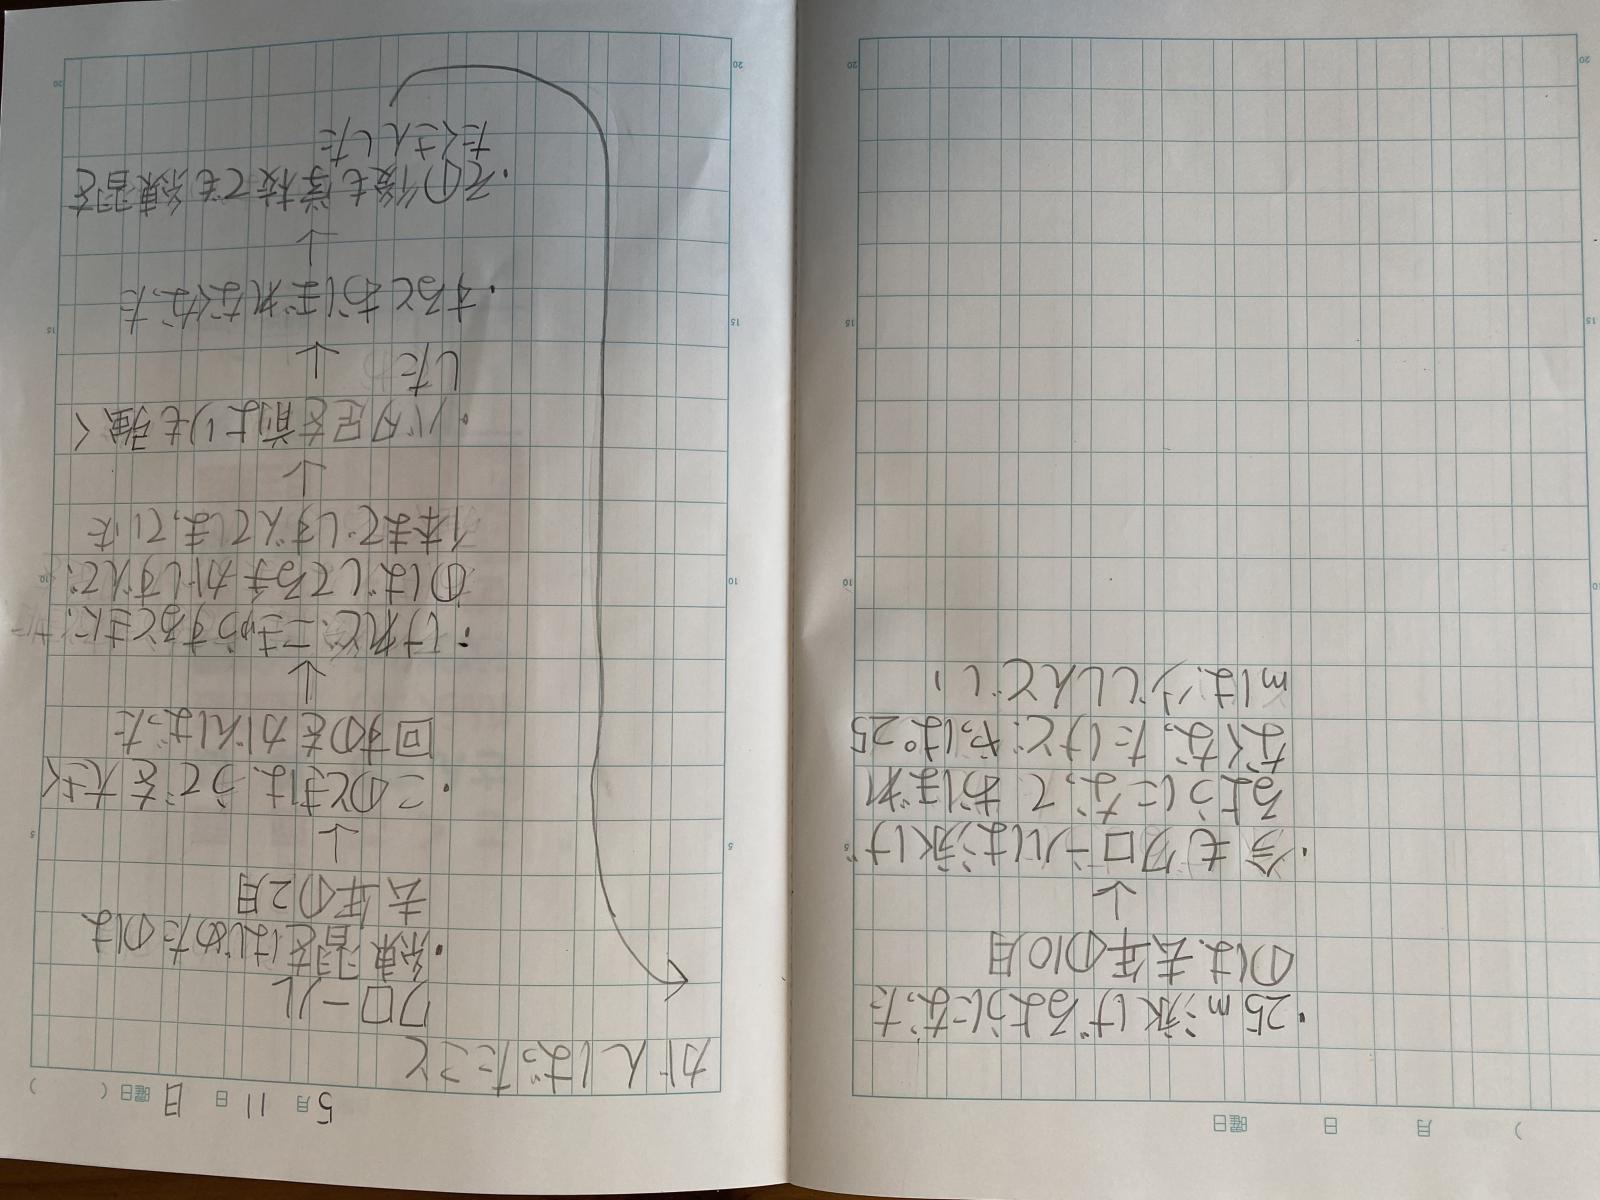 5月11日 日曜日( )
がんばったこと
クロール
・練習をはじめたのは
去年の2月
↓
・このときは、うでを大きく
回すのをがんばった
↓
・けれど、こきゅうするときに、
のばしてる手がしずんで、
体までしずんでしまっていた
↓
・バタ足を前よりも強く
した
↓
・するとおぼれなくなった
↓
・その後も学校でも練習を
たくさんした
月 日 曜日 (
・25m泳げるようになった
のは、去年の10月
↓
・今もクロールは泳げ
るようになって、おぼれ
なくなったけど、やっぱ25
mは少ししんどい